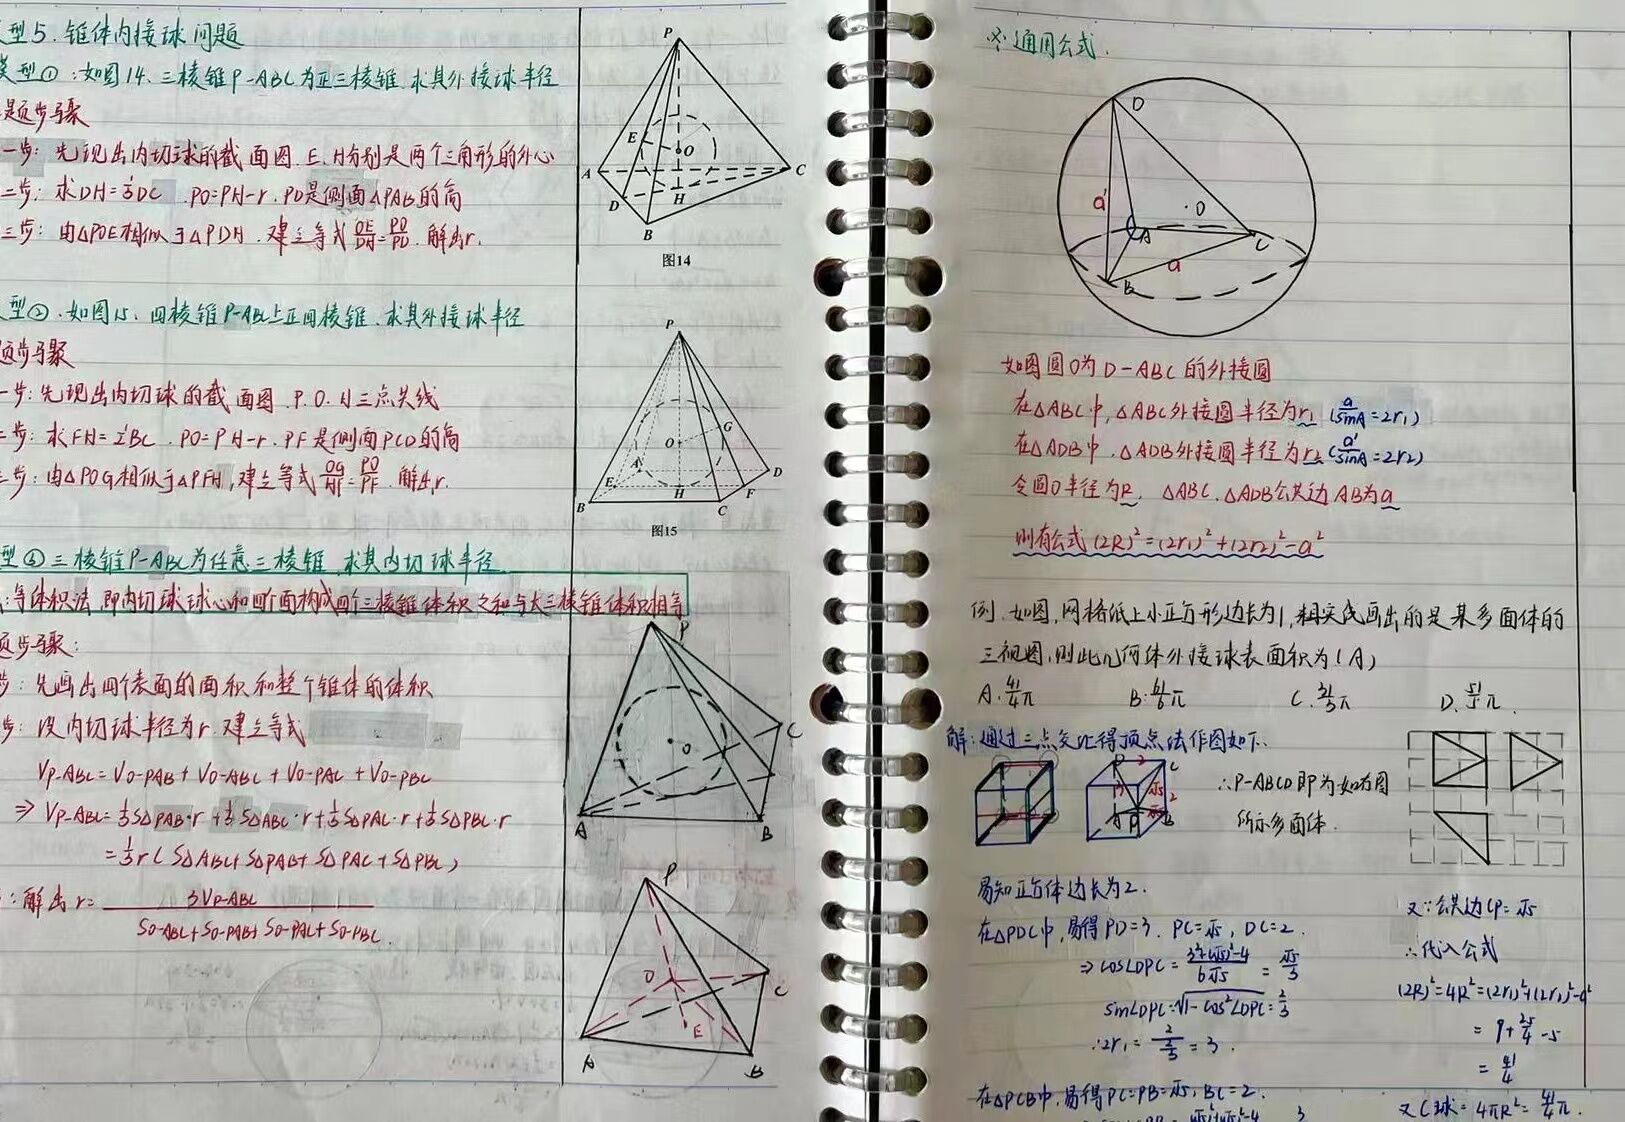 型5.锥体内接球问题
型①:如图14.三棱锥P-ABC为正三棱锥,求其外接球半径
题步骤
一步:先现出内切球的截面图.E.H分别是两个三角形的外心
二步:求DH=⅓DC.PO=PH-r.PD是侧面△PAB的高
三步:由△POE相似于△PDH.建立等式OE/DH=PO/PD.解出r.
P
E
O
A
C
D
H
B
图14
型②.如图15.四棱锥P-ABC上正四棱锥.求其外接球半径
题步骤
一步:先现出内切球的截面图.P.O.H三点共线
步:求FH=½BC.PO=PH-r.PF是侧面PCD的高
步:由△POG相似于△PFH,建立等式OG/HF=PO/PF.解出r.
P
G
O
A
D
E
H
F
B
C
图15
型③三棱锥P-ABC为任意三棱锥.求其内切球半径
:等体积法,即内切球球心和四个面构成四个三棱锥体积之和与大三棱锥体积相等
题步骤:
步:先画出四个表面的面积和整个锥体的体积
步:设内切球半径为r.建立等式
VP-ABC=VO-PAB+VO-ABC+VO-PAC+VO-PBC
⇒VP-ABC=⅓S△PAB·r+⅓S△ABC·r+⅓S△PAC·r+⅓S△PBC·r
=⅓r(S△ABC+S△PAB+S△PAC+S△PBC)
:解出r=3VP-ABC/SO-ABC+SO-PAB+SO-PAC+SO-PBC.
P
C
O
A
B
P
O
C
E
A
B
※通用公式.
D
a'
·O
A
C
a
B
如图圆O为D-ABC的外接圆
在△ABC中,△ABC外接圆半径为r1(a/sinA=2r1)
在△ADB中.△ADB外接圆半径为r2(a'/sinA=2r2)
令圆O半径为R.△ABC.△ADB公共边AB为a
则有公式(2R)²=(2r1)²+(2r2)²-a²
例.如图,网格纸上小正方形边长为1,粗实线画出的是某多面体的
三视图,则此几何体外接球表面积为(A)
A.41/4π B.41/6π C.31/3π D.π.
解:通过三点交汇得顶点法作图如下.
∴P-ABCD即为如右图
所示多面体.
易知正方体边长为2.
在△PDC中,易得PD=3.PC=√5,DC=2.
⇒cos∠DPC=3²+(√5)²-4/6√5=√5/3
sin∠DPC=√1-cos²∠DPC=2/3
∴2r1=2/(2/3)=3.
在△PCB中,易得PC=PB=√5,BC=2.
又∵公共边CP=√5
∴代入公式
(2R)²=4R²=(2r1)²+(2r2)²-a²
=9+25/4-5
=41/4
又C球=4πR²=41/4π.